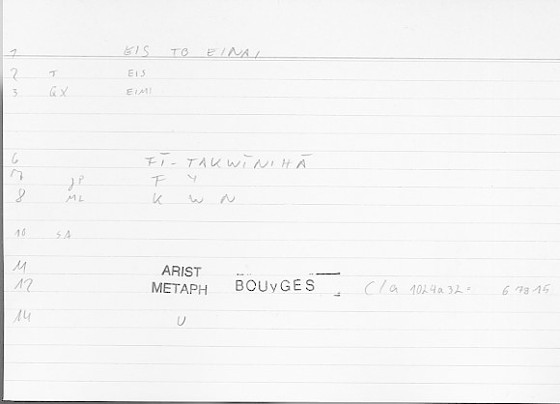 1 EIS TO EINAI
2 T EIS
3 GX EIMI
6 FĪ-TAKWĪNIHĀ
7 JP F Y
8 ML K W N
10 SA
11 ARIST
12 METAPH BOUYGES C/a 1024a32= 678 15
14 U